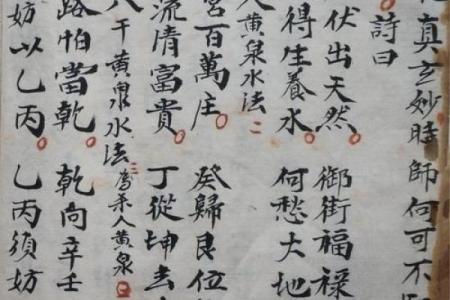 真玄妙時師何可不
詩曰
伏出天然 御街福禄
得生養水 何愁大地
人黄泉水法二
宮百萬庄 癸歸艮位
流清富貴 丁從坤去
八干黄泉水法三 為杀人黄泉
路怕當乾 乾向辛壬
妨以乙丙 乙丙須妨